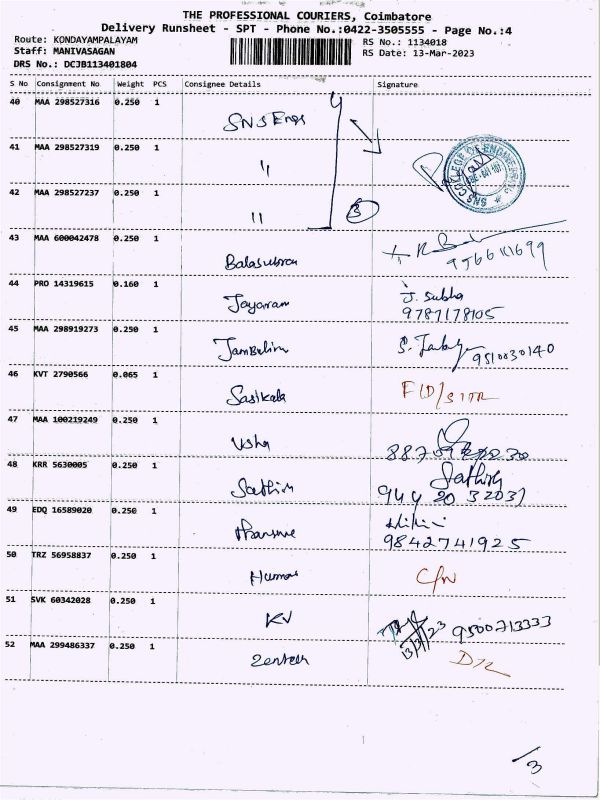 THE PROFESSIONAL COURIERS, Coimbatore
Delivery Runsheet - SPT - Phone No.:0422-3505555 - Page No.:4
Route: KONDAYAMPALAYAM
RS No.: 1134018
Staff: MANIVASAGAN
RS Date: 13-Mar-2023
DRS No.: DCJB113401804
S No Consignment No Weight PCS Consignee Details Signature
40 MAA 298527316 0.250 1 SNS Engs
41 MAA 298527319 0.250 1 "
42 MAA 298527237 0.250 1 " 3
43 MAA 600042478 0.250 1 Balasubram
44 PRO 14319615 0.160 1 Jayaram J. Subha
9787178105
45 MAA 298919273 0.250 1 9510030140
46 KVT 2790566 0.065 1 Sasikala
47 MAA 100219249 0.250 1 Usha
48 KRR 5630005 0.250 1 Sathish Sathish
49 EDQ 16589020 0.250 1
9842741925
50 TRZ 56958837 0.250 1
51 SVK 60342028 0.250 1 KV 13/3/23 9500713333
52 MAA 299486337 0.250 1
/3